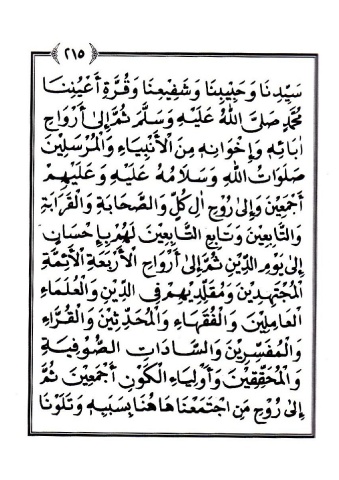 ٢١٥
سَيِّدِنَا وَحَبِيْبِنَا وَشَفِيْعِنَا وَقُرَّةِ أَعْيُنِنَا
مُحَمَّدٍ صَلَّى اللهُ عَلَيْهِ وَسَلَّمَ ثُمَّ إِلَى أَرْوَاحِ
اٰبَائِهِ وَإِخْوَانِهِ مِنَ الْأَنْبِيَاءِ وَالْمُرْسَلِيْنَ
صَلَوَاتُ اللهِ وَسَلَامُهُ عَلَيْهِ وَعَلَيْهِمْ
أَجْمَعِيْنَ وَإِلَى رُوْحِ اٰلِ كُلٍّ وَالصَّحَابَةِ وَالْقَرَابَةِ
وَالتَّابِعِيْنَ وَتَابِعِ التَّابِعِيْنَ لَهُمْ بِإِحْسَانٍ
إِلَى يَوْمِ الدِّيْنِ ثُمَّ إِلَى أَرْوَاحِ الْأَرْبَعَةِ الْأَئِمَّةِ
الْمُجْتَهِدِيْنَ وَمُقَلِّدِيْهِمْ فِي الدِّيْنِ وَالْعُلَمَاءِ
الْعَامِلِيْنَ وَالْفُقَهَاءِ وَالْمُحَدِّثِيْنَ وَالْقُرَّاءِ
وَالْمُفَسِّرِيْنَ وَالسَّادَاتِ الصُّوْفِيَّةِ
وَالْمُحَقِّقِيْنَ وَأَوْلِيَاءِ الْكَوْنِ أَجْمَعِيْنَ ثُمَّ
إِلَى رُوْحِ مَنِ اجْتَمَعْنَا هَاهُنَا بِسَبَبِهِ وَتَلَوْنَا